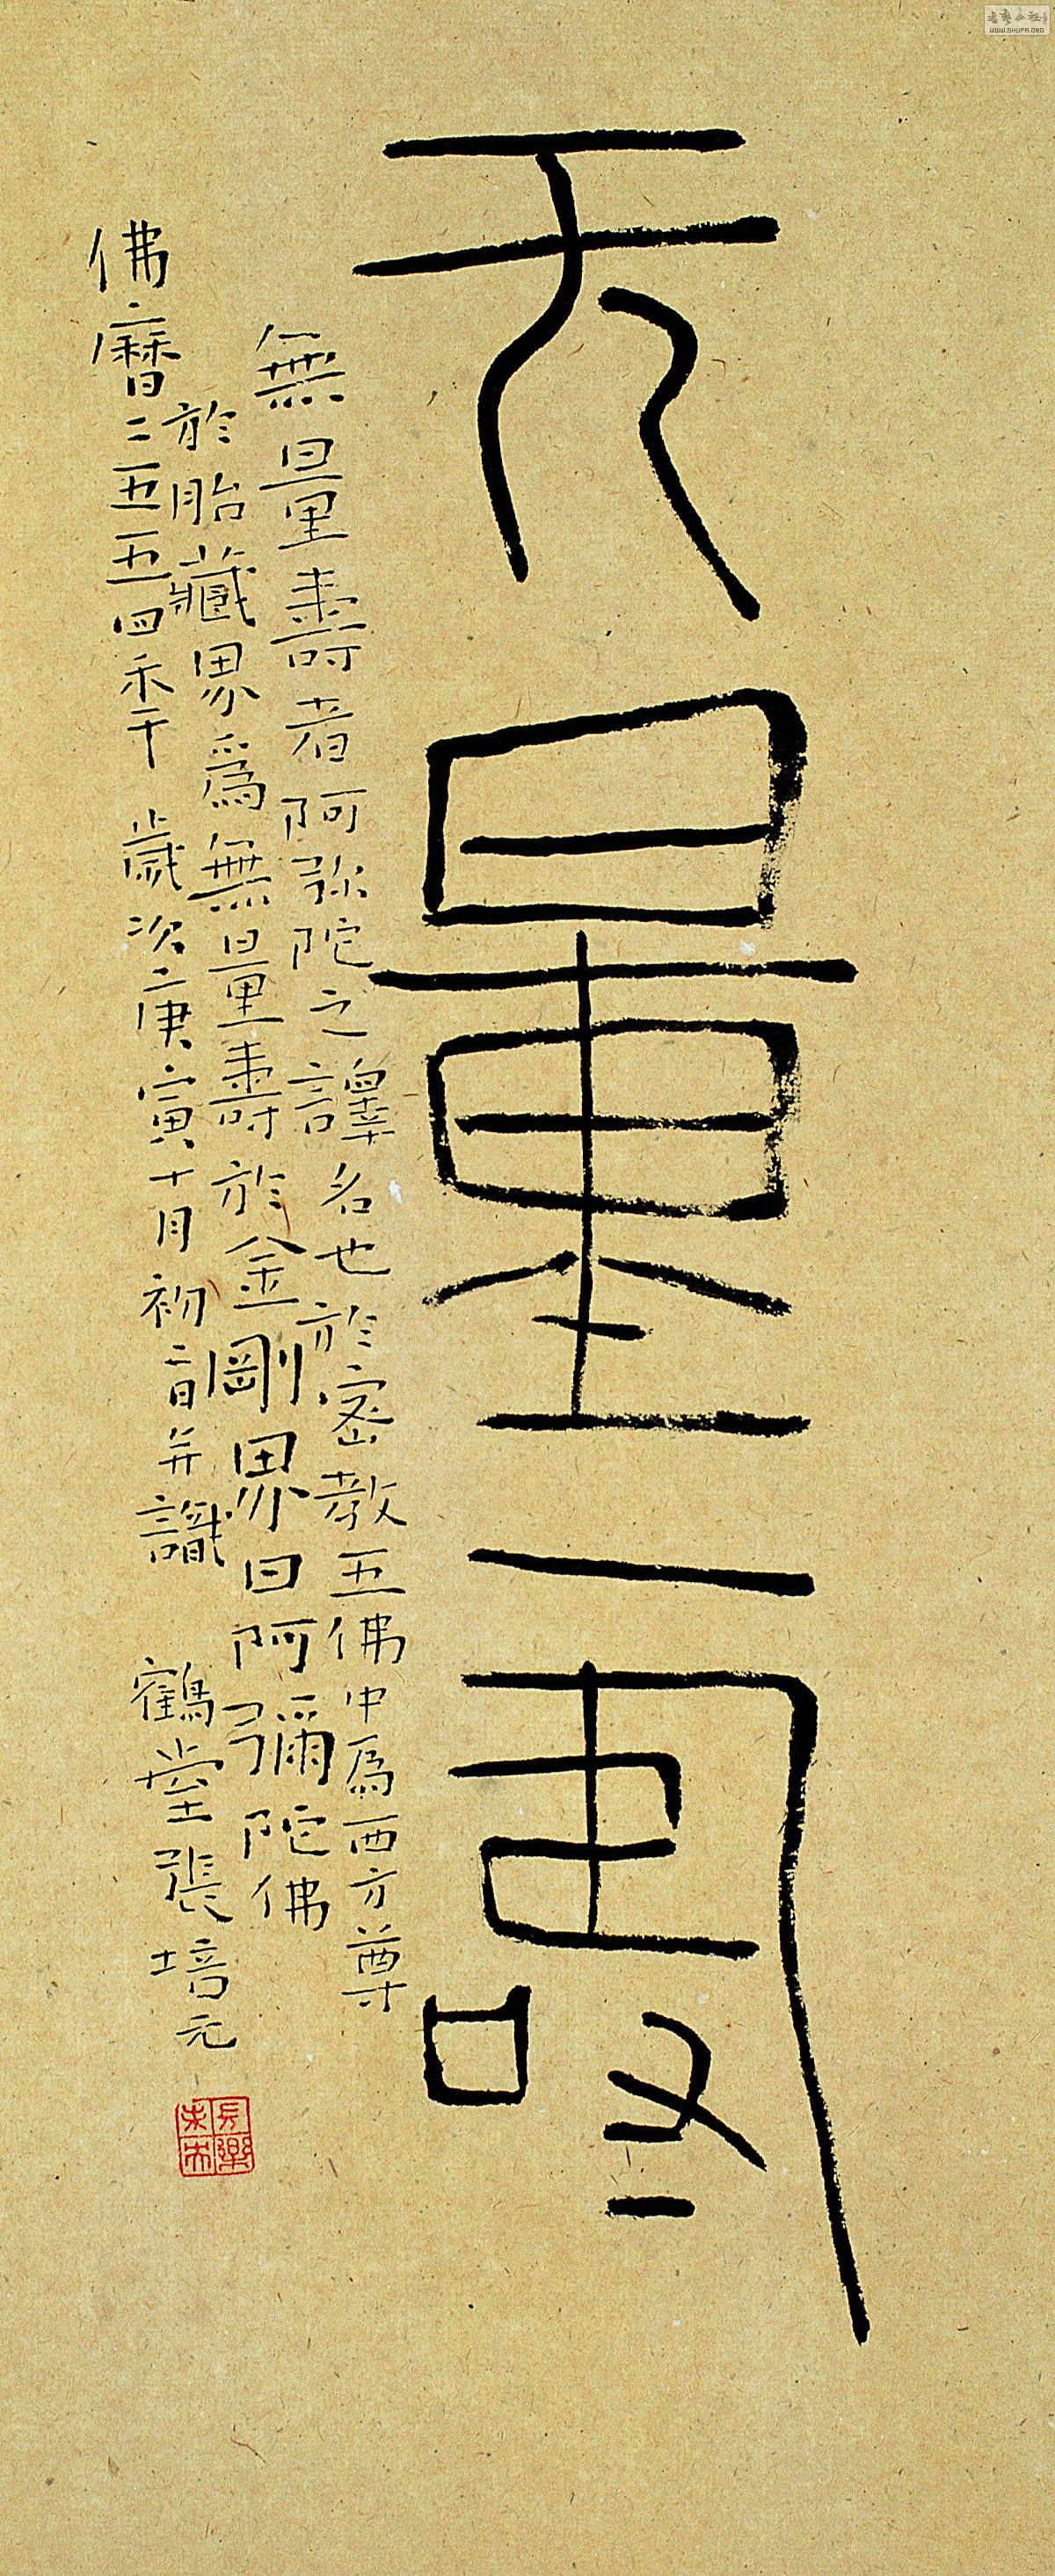 无量壽
無量壽者阿弥陀之譯名也於密教五佛中為西方尊
於胎藏界為無量壽於金剛界曰阿彌陀佛
佛曆二五五四秊 歲次庚寅十月初二日并識 鶴堂張培元
長樂未央
書法公社
WWW.SHUFA.ORG